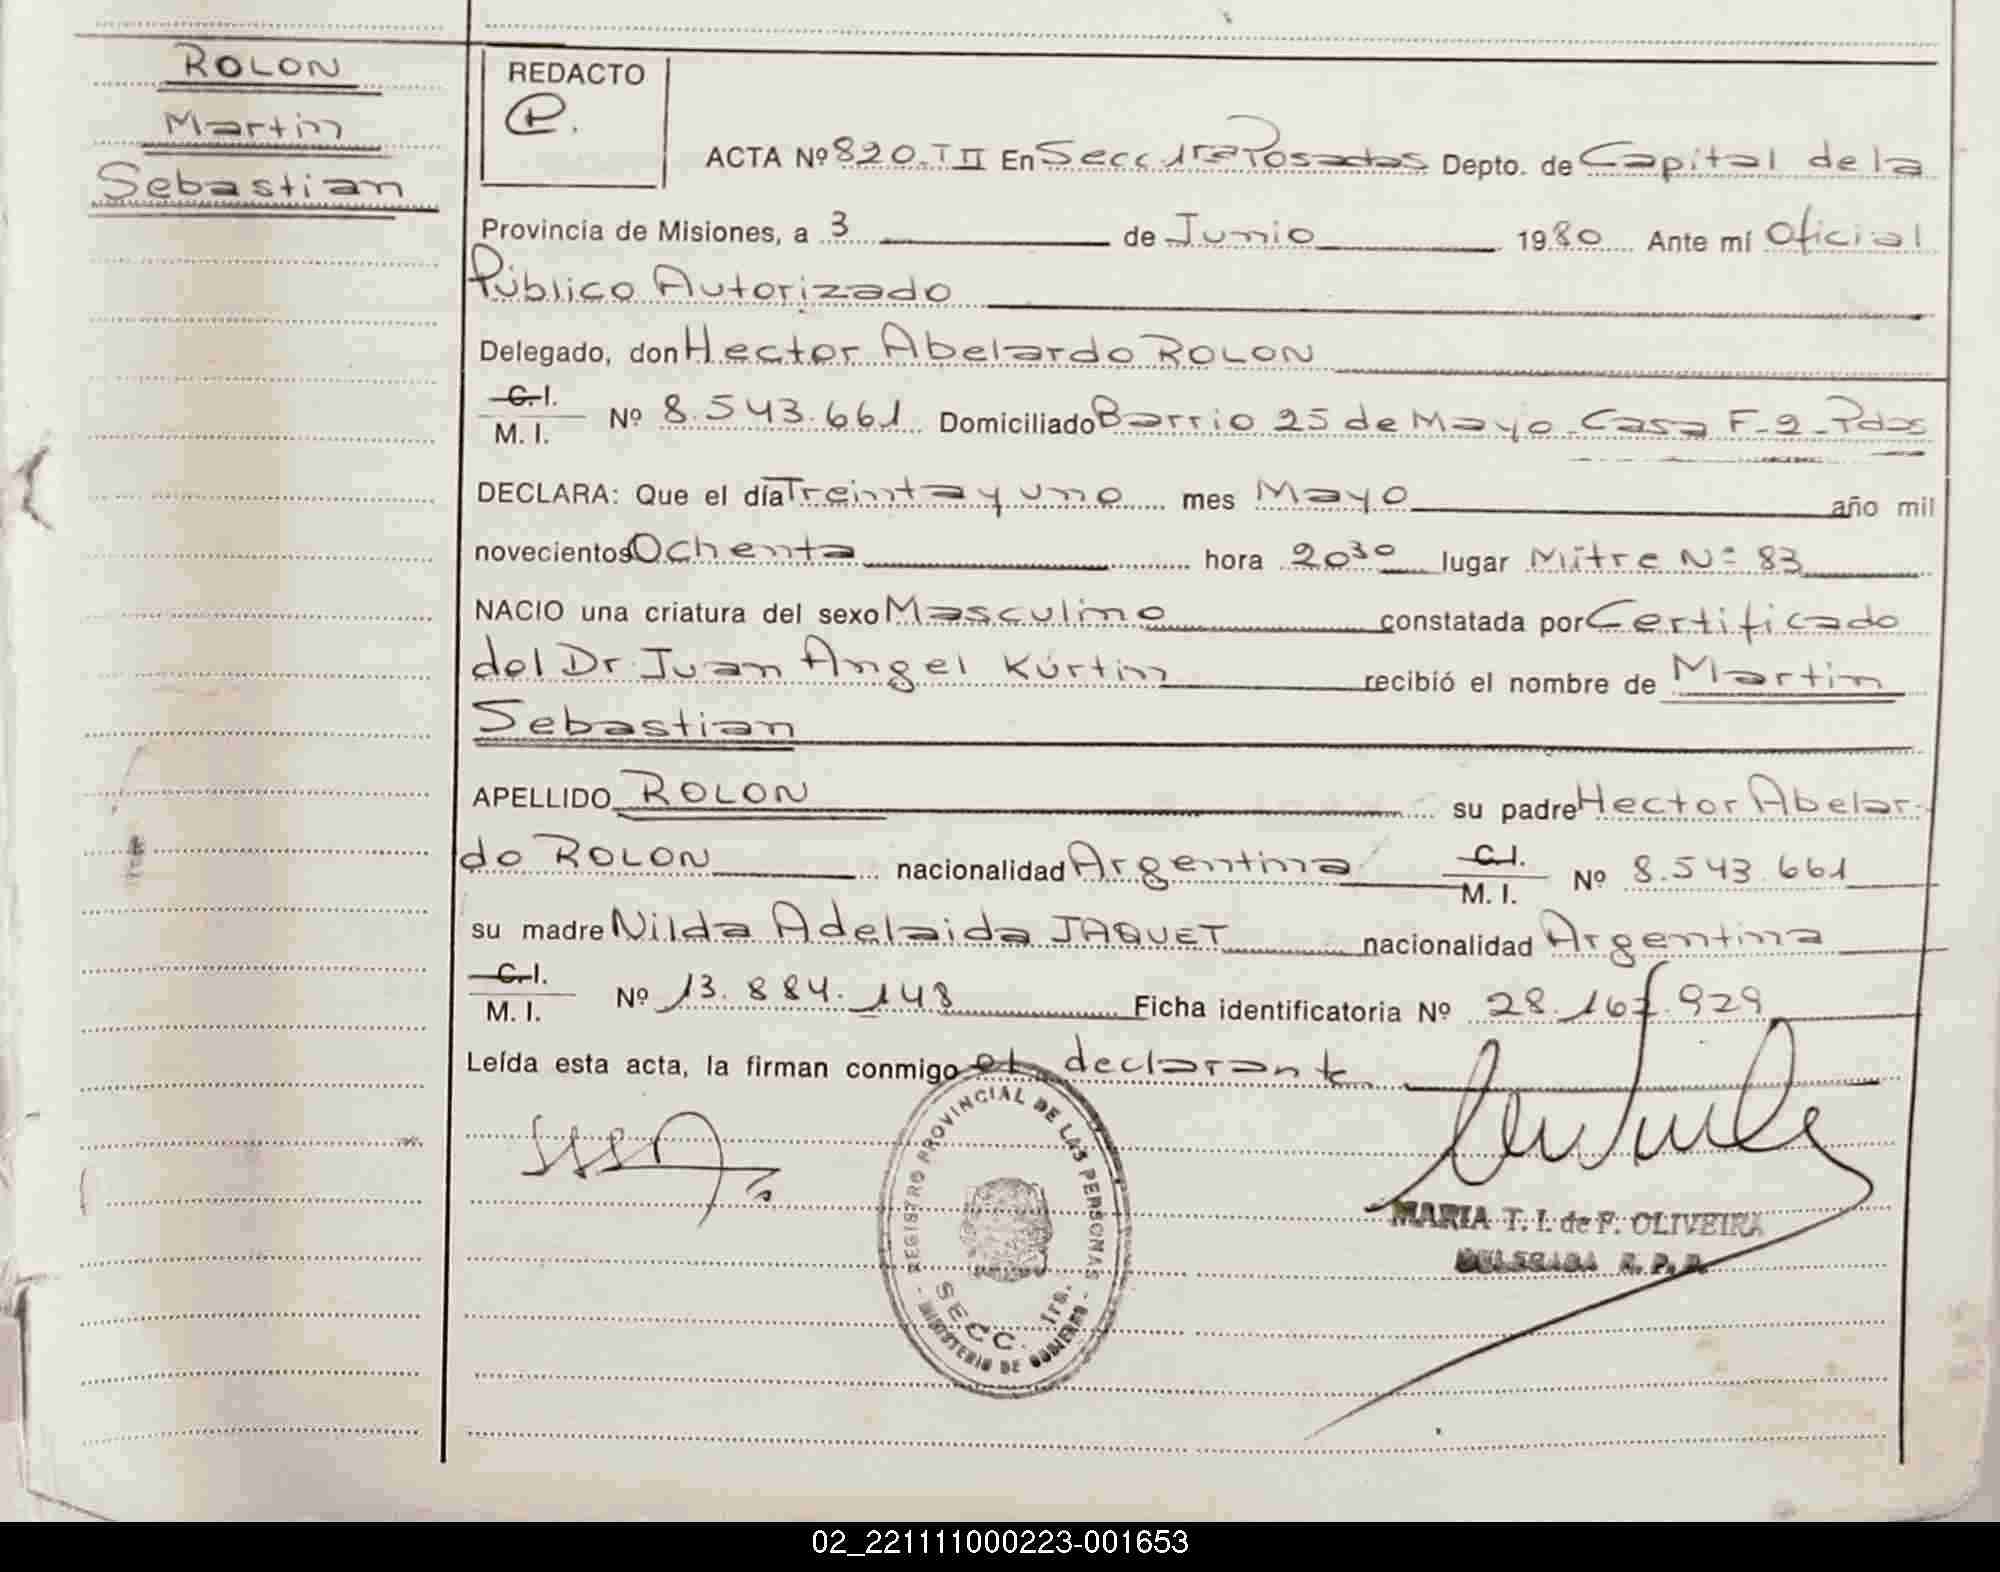 ROLON
Martin
Sebastian
REDACTO
ACTA Nº 820. T II En Secc. 1ra Posadas Depto. de Capital de la
Provincia de Misiones, a 3 de Junio 1980 Ante mí Oficial
Público Autorizado
Delegado, don Hector Abelardo ROLON
C.I.
M. I. Nº 8.543.661 Domiciliado Barrio 25 de Mayo - Casa F-2 - Pdas
DECLARA: Que el día Treinta y uno mes Mayo año mil
novecientos Ochenta hora 20³⁰ lugar Mitre Nº 83
NACIO una criatura del sexo Masculino constatada por Certificado
del Dr. Juan Angel Kúrtin recibió el nombre de Martin
Sebastian
APELLIDO ROLON su padre Hector Abelar-
do ROLON nacionalidad Argentina C.I.
M. I. Nº 8.543.661
su madre Nilda Adelaida JAQUET nacionalidad Argentina
C.I.
M. I. Nº 13.884.148 Ficha identificatoria Nº 28.167.929
Leída esta acta, la firman conmigo el declarante
REGISTRO PROVINCIAL DE LAS PERSONAS
SECC. 1ra.
- MINISTERIO DE GOBIERNO -
MARIA T. I. de F. OLIVEIRA
DELEGADA R. P. P.
02_221111000223-001653